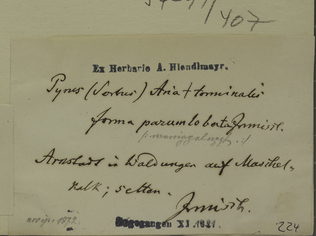 407
Ex Herbario A. Hiendlmayr.
Pyrus (Sorbus) Aria + torminalis
forma parumlobata Irmisch.
Arnstadt in Waldungen auf Muschel-
kalk; selten.
Irmisch.
Eingegangen XI.1821.
224